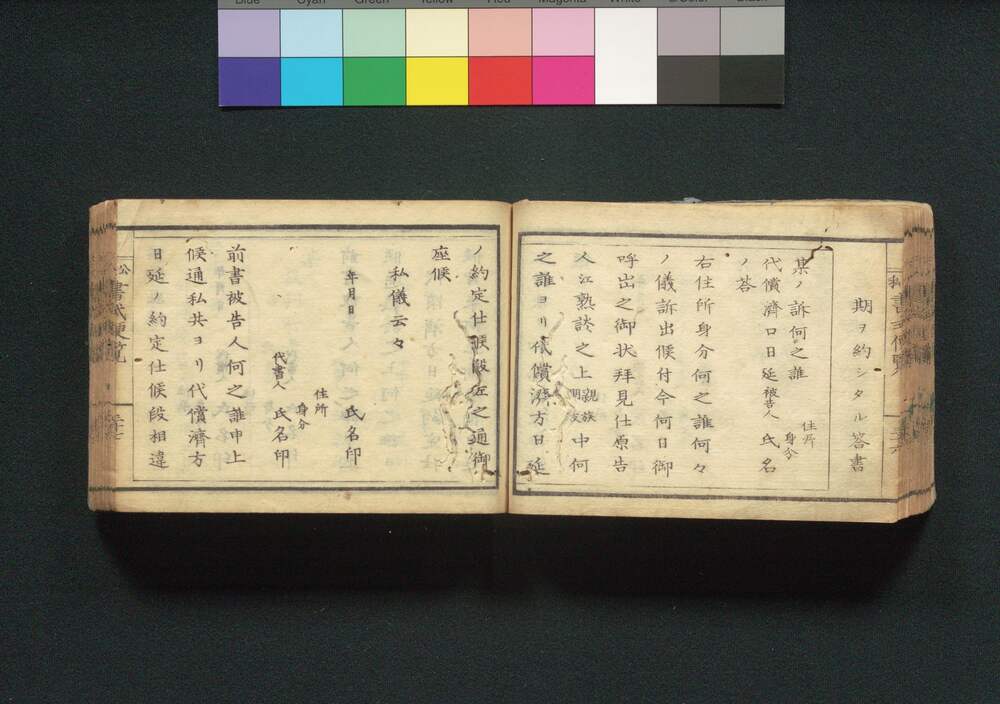 期ヲ約シタル答書
某ノ訴何之誰
住所
身分
代償済口日延被告人 氏名
ノ答
右住所身分何之誰何々
ノ儀訴出候付今何日御
呼出之御状拝見仕原告
人江熟談之上親族朋友中何
之誰ヨリ代償済方日延
ノ約定仕候段左之通御
座候
私儀云々
年月日
氏名印
住所
身分
代書人 氏名印
前書被告人何之誰申上
候通私共ヨリ代償済方
日延ノ約定仕候段相違
公
書式便覧
Cyan
Green
Yellow
Red
Magenta
White